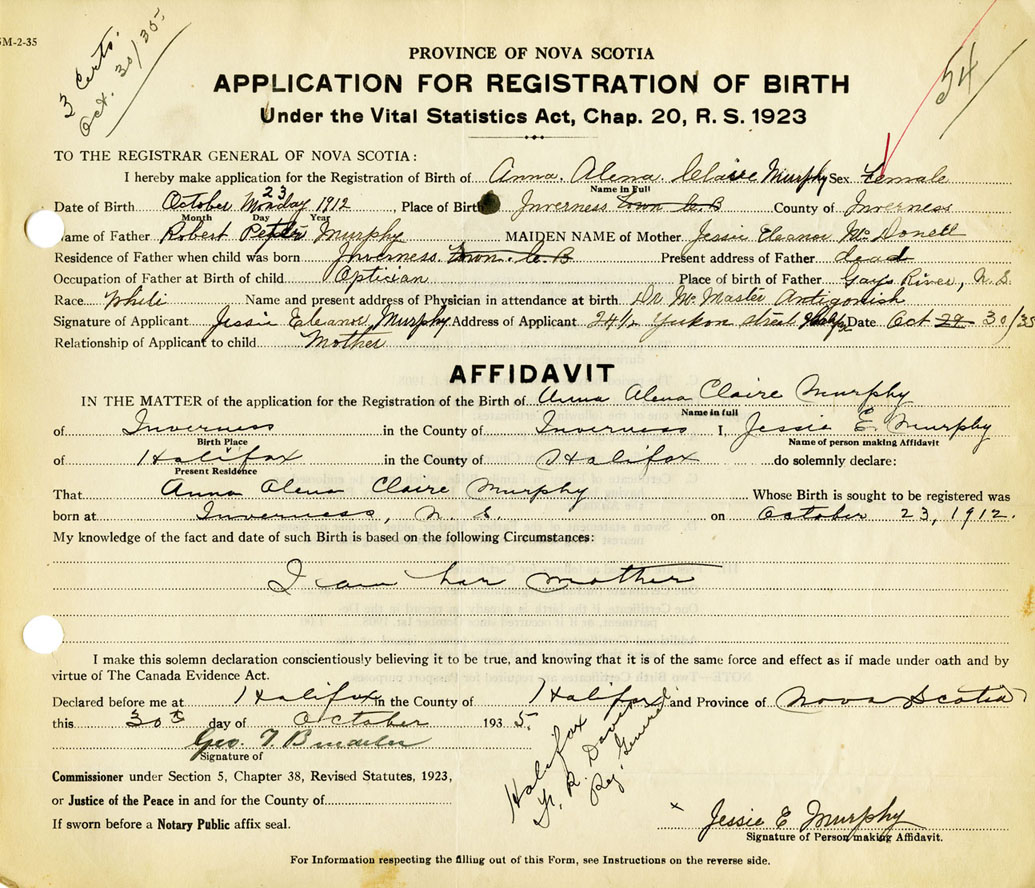 5M-2-35
3 Certs.
Oct. 30/35
54
PROVINCE OF NOVA SCOTIA
APPLICATION FOR REGISTRATION OF BIRTH
Under the Vital Statistics Act, Chap. 20, R. S. 1923
TO THE REGISTRAR GENERAL OF NOVA SCOTIA:
I hereby make application for the Registration of Birth of Anna Alena Claire Murphy Sex Female
Name in Full
Date of Birth October 23 Monday 1912, Place of Birth Inverness Town C. B County of Inverness
Month Day Year
Name of Father Robert Peter Murphy MAIDEN NAME of Mother Jessie Eleanor McDonell
Residence of Father when child was born Inverness Town C. B Present address of Father dead
Occupation of Father at Birth of child Optician Place of birth of Father Gays River, N.S.
Race White Name and present address of Physician in attendance at birth Dr McMaster Antigonish
Signature of Applicant Jessie Eleanor Murphy Address of Applicant 24½ Yukon street Halifx Date Oct 29 30/35
Relationship of Applicant to child Mother
AFFIDAVIT
IN THE MATTER of the application for the Registration of the Birth of Anna Alena Claire Murphy
Name in full
of Inverness in the County of Inverness I, Jessie E. Murphy
Birth Place Name of person making Affidavit
of Halifax in the County of Halifax do solemnly declare:
Present Residence
That Anna Alena Claire Murphy Whose Birth is sought to be registered was
born at Inverness, N. S. on October 23, 1912.
My knowledge of the fact and date of such Birth is based on the following Circumstances:
I am her mother
I make this solemn declaration conscientiously believing it to be true, and knowing that it is of the same force and effect as if made under oath and by
virtue of The Canada Evidence Act.
Declared before me at Halifax in the County of Halifax and Province of Nova Scotia
this 30th day of October 1935.
Geo. T.
Signature of
Halifax
Davis
Reg. General
Commissioner under Section 5, Chapter 38, Revised Statutes, 1923,
or Justice of the Peace in and for the County of
If sworn before a Notary Public affix seal.
x Jessie E Murphy
Signature of Person making Affidavit.
For Information respecting the filling out of this Form, see Instructions on the reverse side.